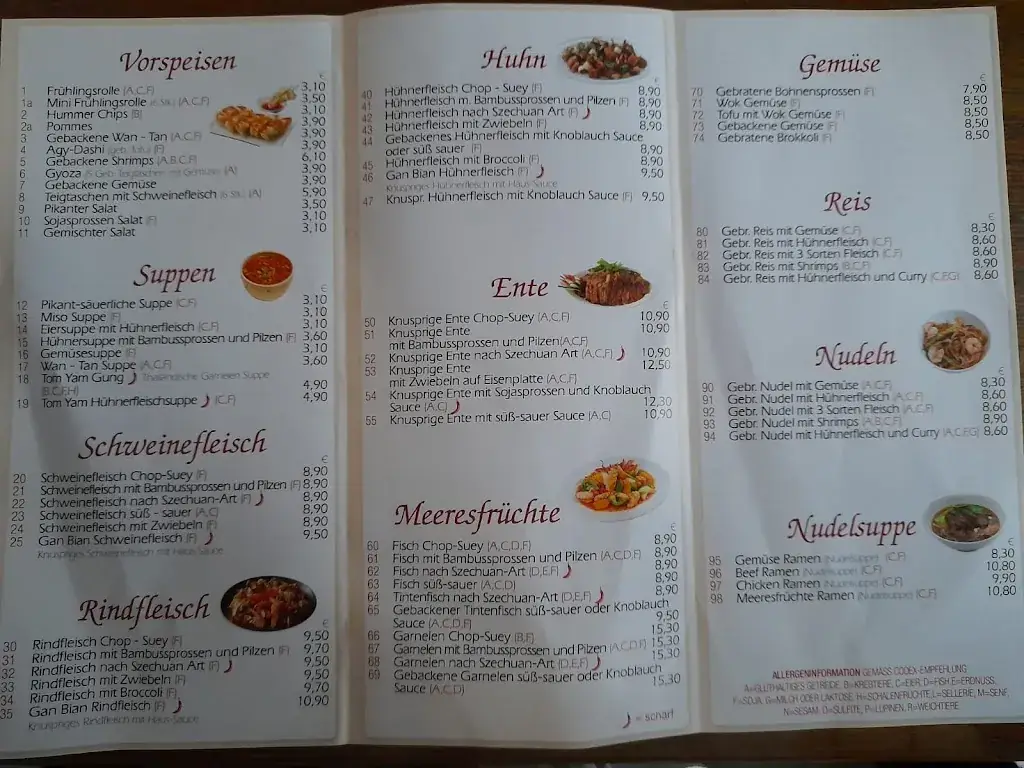 Vorspeisen
€
1 Frühlingsrolle (A,C,F) 3,10
1a Mini Frühlingsrolle (6 Stk.) (A,C,F) 3,50
2 Hummer Chips (B) 3,10
2a Pommes 3,90
3 Gebackene Wan - Tan (A,C,F) 3,90
4 Agy-Dashi (geb. Tofu) (F) 3,90
5 Gebackene Shrimps (A,B,C,F) 6,10
6 Gyoza (5 Geb. Teigtaschen mit Gemüse) (A) 3,90
7 Gebackene Gemüse 3,90
8 Teigtaschen mit Schweinefleisch (6 Stk.) (A) 5,90
9 Pikanter Salat 3,50
10 Sojasprossen Salat (F) 3,10
11 Gemischter Salat 3,10
Suppen
€
12 Pikant-säuerliche Suppe (C,F) 3,10
13 Miso Suppe (F) 3,10
14 Eiersuppe mit Hühnerfleisch (C,F) 3,10
15 Hühnersuppe mit Bambussprossen und Pilzen (F) 3,60
16 Gemüsesuppe (F) 3,10
17 Wan - Tan Suppe (A,C,F) 3,60
18 Tom Yam Gung Thailändische Garnelen Suppe
(B,C,F,H) 4,90
19 Tom Yam Hühnerfleischsuppe (C,F) 4,90
Schweinefleisch
€
20 Schweinefleisch Chop-Suey (F) 8,90
21 Schweinefleisch mit Bambussprossen und Pilzen (F) 8,90
22 Schweinefleisch nach Szechuan-Art (F) 8,90
23 Schweinefleisch süß - sauer (A,C) 8,90
24 Schweinefleisch mit Zwiebeln (F) 8,90
25 Gan Bian Schweinefleisch (F) 9,50
Knuspriges Schweinefleisch mit Haus-Sauce
Rindfleisch
€
30 Rindfleisch Chop - Suey (F) 9,50
31 Rindfleisch mit Bambussprossen und Pilzen (F) 9,70
32 Rindfleisch nach Szechuan Art (F) 9,50
33 Rindfleisch mit Zwiebeln (F) 9,50
34 Rindfleisch mit Broccoli (F) 9,70
35 Gan Bian Rindfleisch (F) 10,90
Knuspriges Rindfleisch mit Haus-Sauce
Huhn
€
40 Hühnerfleisch Chop - Suey (F) 8,90
41 Hühnerfleisch m. Bambussprossen und Pilzen (F) 8,90
42 Hühnerfleisch nach Szechuan Art (F) 8,90
43 Hühnerfleisch mit Zwiebeln (F) 8,90
44 Gebackenes Hühnerfleisch mit Knoblauch Sauce
oder süß sauer (F) 8,90
45 Hühnerfleisch mit Broccoli (F) 8,90
46 Gan Bian Hühnerfleisch (F) 9,50
Knuspriges Hühnerfleisch mit Haus-Sauce
47 Knuspr. Hühnerfleisch mit Knoblauch Sauce (F) 9,50
Ente
€
50 Knusprige Ente Chop-Suey (A,C,F) 10,90
51 Knusprige Ente 10,90
mit Bambussprossen und Pilzen(A,C,F)
52 Knusprige Ente nach Szechuan Art (A,C,F) 10,90
53 Knusprige Ente 12,50
mit Zwiebeln auf Eisenplatte (A,C,F)
54 Knusprige Ente mit Sojasprossen und Knoblauch
Sauce (A,C) 12,30
55 Knusprige Ente mit süß-sauer Sauce (A,C) 10,90
Meeresfrüchte
€
60 Fisch Chop-Suey (A,C,D,F) 8,90
61 Fisch mit Bambussprossen und Pilzen (A,C,D,F) 8,90
62 Fisch nach Szechuan-Art (D,E,F) 8,90
63 Fisch süß-sauer (A,C,D) 8,90
64 Tintenfisch nach Szechuan-Art (D,E,F) 8,90
65 Gebackener Tintenfisch süß-sauer oder Knoblauch
Sauce (A,C,D,F) 9,50
66 Garnelen Chop-Suey (B,F) 15,30
67 Garnelen mit Bambussprossen und Pilzen (A,C,D,F) 15,30
68 Garnelen nach Szechuan-Art (D,E,F) 15,30
69 Gebackene Garnelen süß-sauer oder Knoblauch
Sauce (A,C,D) 15,30
= scharf
Gemüse
€
70 Gebratene Bohnensprossen (F) 7,90
71 Wok Gemüse (F) 8,50
72 Tofu mit Wok Gemüse (F) 8,50
73 Gebackene Gemüse (F) 8,50
74 Gebratene Brokkoli (F) 8,50
Reis
€
80 Gebr. Reis mit Gemüse (C,F) 8,30
81 Gebr. Reis mit Hühnerfleisch (C,F) 8,60
82 Gebr. Reis mit 3 Sorten Fleisch (C,F) 8,60
83 Gebr. Reis mit Shrimps (B,C,F) 8,90
84 Gebr. Reis mit Hühnerfleisch und Curry (C,F,G) 8,60
Nudeln
€
90 Gebr. Nudel mit Gemüse (A,C,F) 8,30
91 Gebr. Nudel mit Hühnerfleisch (A,C,F) 8,60
92 Gebr. Nudel mit 3 Sorten Fleisch (A,C,F) 8,60
93 Gebr. Nudel mit Shrimps (A,B,C,F) 8,90
94 Gebr. Nudel mit Hühnerfleisch und Curry (A,C,F,G) 8,60
Nudelsuppe
€
95 Gemüse Ramen (Nudelsuppe) (C,F) 8,30
96 Beef Ramen (Nudelsuppe) (C,F) 10,80
97 Chicken Ramen (Nudelsuppe) (C,F) 9,90
98 Meeresfrüchte Ramen (Nudelsuppe) (C,F) 10,80
ALLERGENINFORMATION GEMÄSS CODEX-EMPFEHLUNG
A=GLUTHALTIGES GETREIDE, B=KREBTIERE, C=EIER, D=FISH, E=ERDNUSS,
F=SOJA, G=MILCH ODER LAKTOSE, H=SCHALENFRÜCHTE, L=SELLERIE, M=SENF,
N=SESAM, O=SULFITE, P=LUPINEN, R=WEICHTIERE